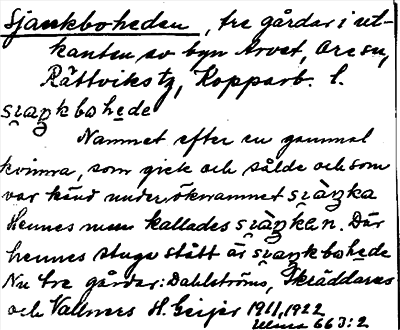 Sjankboheden, tre gårdar i ut-
kanten av byn Arvet, Ore sn,
Rättviks tg, Kopparb. l.
sjaŋkbohede
Namnet efter en gammal
kvinna, som gick och sålde och som
var känd under öknamnet sjàŋka
Hennes man kallades sjàŋkan. Där
hennes stuga stått är sjaŋkbohede
Nu tre gårdar: Dahlströms, Skräddares
och Vallmers H. Geijer 1911, 1922
Ulma 663:2